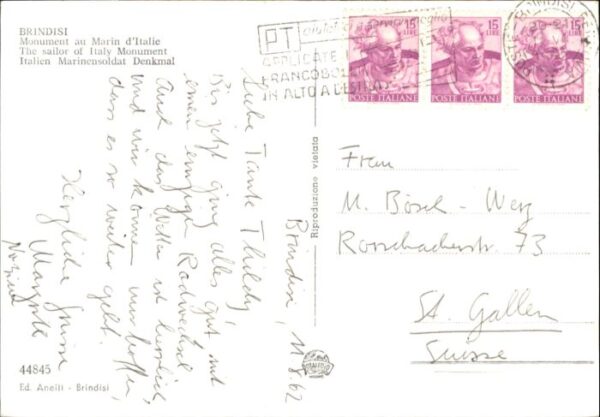 BRINDISI
Monument au Marin d'Italie
The sailor of Italy Monument
Italien Marinensoldat Denkmal
PT
APPLICATE I
FRANCOBOL
IN ALTO A DESTRA
15 LIRE
POSTE ITALIANE
15 LIRE
POSTE ITALIANE
15 LIRE
POSTE ITALIANE
BRINDISI
Brindisi, 11.8.62
Liebe Tante Thildy,
Bis jetzt ging alles gut mit
einem einzigen Radwechsel.
Auch das Wetter ist herrlich
und wir können nur hoffen,
dass es so weiter geht.
Herzliche Grüsse
Margrit
Riproduzione vietata
Frau
M. Bösch-Weg
Rorschacherstr. 73
St. Gallen
Suisse
44845
Ed. Anelli - Brindisi